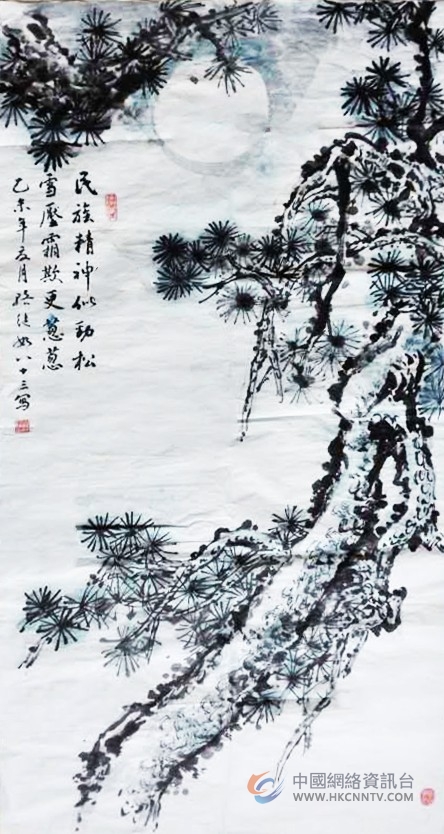 民族精神似劲松
雪壓霜欺更葱葱
乙未年月八十三写
中國網絡資訊台
WWW.HKCNNTV.COM